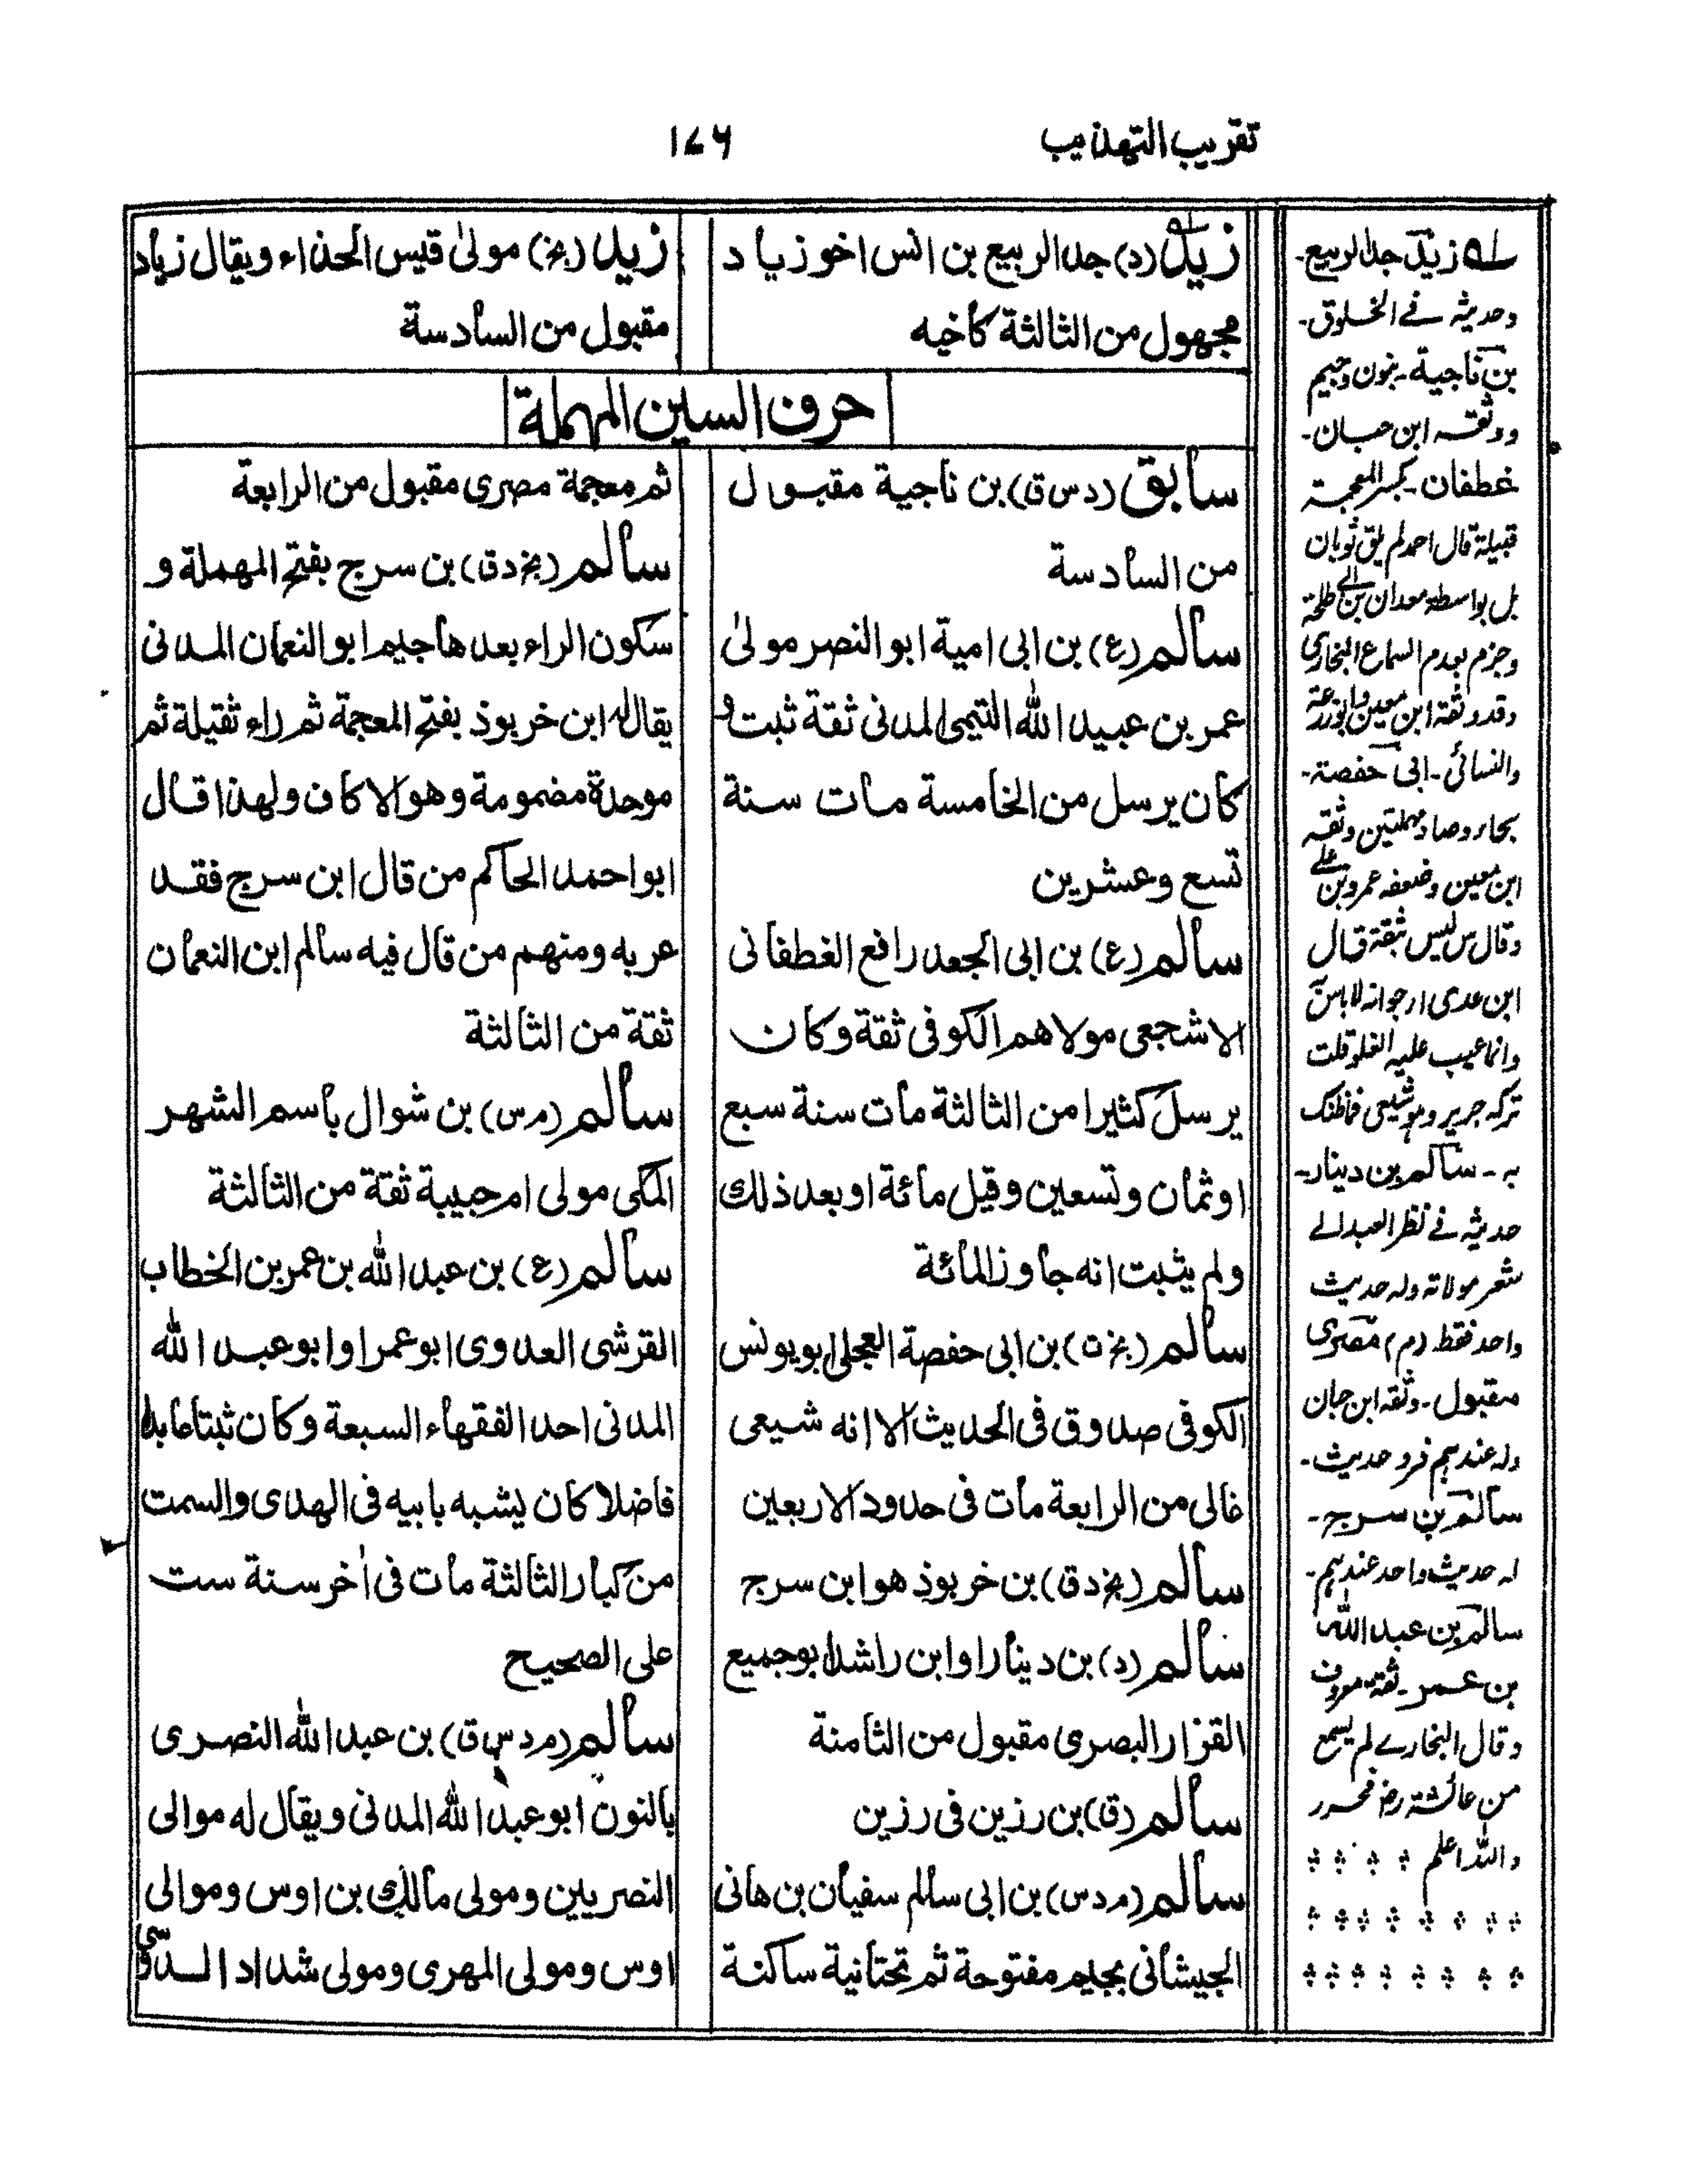 تقريب التهذيب
١٧٦
زيد (د) جد الربيع بن انس اخو زياد
مجهول من الثالثة كأخيه
زيد (بخ) مولىٰ قيس الحذاء ويقال زياد
مقبول من السأدسة
حرف السين المهملة
سأبق (د س ق) بن نأجية مقبول
من السأدسة
سألم (ع) بن ابى امية ابو النضر مولىٰ
عمر بن عبيد الله التيمى المدنى ثقة ثبت و
كان يرسل من الخأمسة مأت سنة
تسع وعشرين
سألم (ع) بن ابى الجعد رافع الغطفانى
الاشجعى مولاهم الكوفى ثقة وكان
يرسل كثيرا من الثالثة مأت سنة سبع
اوثمان وتسعين وقيل مأئة او بعد ذلك
ولم يثبت انه جأوز المأئة
سألم (بخ ت) بن ابى حفصة العجلى ابو يونس
الكوفى صدوق فى الحديث الا انه شيعى
غالى من الرابعة مأت فى حدود الاربعين
سألم (بخ د ق) بن خربوذ هو ابن سرج
سألم (د) بن دينأر او ابن راشد ابو جميع
القزاز البصرى مقبول من الثأمنة
سألم (ق) بن رزين فى رزين
سألم (م د س) بن ابى سالم سفيأن بن هانى
الجيشأنى بجيم مفتوحة ثم تحتأنية سأكنة
ثم معجمة مصرى مقبول من الرابعة
سألم (بخ د ق) بن سرج بفتح المهملة و
سكون الراء بعد هأجيم ابو النعمان المدنى
يقال له ابن خربوذ بفتح المعجمة ثم راء ثقيلة ثم
موحدة مضمومة وهو الاكاف ولهذا قال
ابو احمد الحأكم من قال ابن سرج فقد
عربه ومنهم من قال فيه سالم ابن النعمان
ثقة من الثألثة
سألم (م س) بن شوال بأسم الشهر
المكى مولى ام حبيبة ثقة من الثألثة
سألم (ع) بن عبد الله بن عمر بن الخطاب
القرشى العدوى ابو عمر او ابو عبد الله
المدنى احد الفقهاء السبعة وكان ثبتا عابدا
فاضلا كان يشبه بابيه فى الهدى والسمت
من كبار الثالثة مأت فى اٰخر سنة ست
على الصحيح
سألم (م د س ق) بن عبد الله النصرى
بألنون ابو عبد الله المدنى ويقال له موالى
النصريين ومولى مألك بن اوس وموالى
اوس ومولى المهرى ومولى شداد الدوسى
سله زيد جد الربيع۔
وحديثه فے الخلوق۔
بن ناجية۔ بنون وجيم
ووثقه ابن حبان۔
غطفان۔ بكسر المعجمة
قبيلة قال احمد لم يلق ثوبان
بل بواسطة معدان بن ابى طلحة
وجزم بعدم السماع البخارى
وقد وثقة ابن معين وابو زرعة
والنسائى۔ ابى حفصة۔
بحاء وصاد مهملتين وثقه
ابن معين وضعفه عمرو بن على
وقال س ليس بثقة قال
ابن عدى ارجو انه لا باس به
وانما عيب عليه الغلو قلت
تركه جرير وهو شيعى فما ظنك
به۔ سالم بن دينار۔
حديثه فے نظر العبد الے
شعر مولاته وله حديث
واحد فقط (م) مصرى
مقبول۔ وثقه ابن حبان
وله عندهم فرد حديث۔
سالم بن سرج۔
له حديث واحد عندهم۔
سالم بن عبد الله
بن عمر۔ ثقة معروف
وقال البخارے لم يسمع
من عائشة رض فحرر
والله اعلم